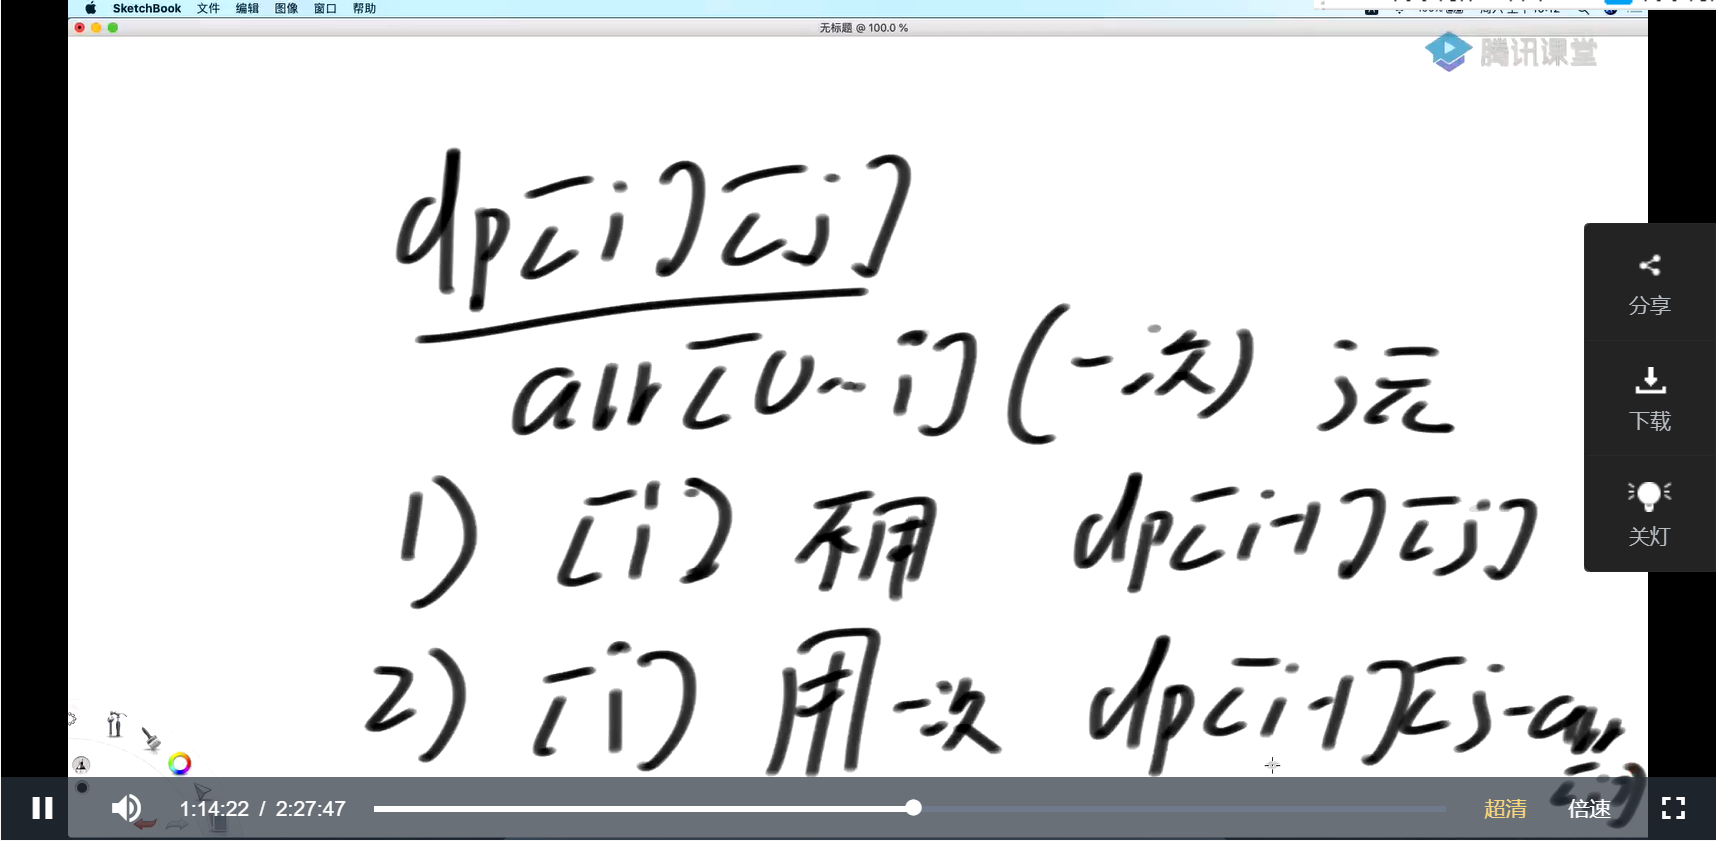 SketchBook 文件 编辑 图像 窗口 帮助
无标题 @ 100.0 %
腾讯课堂
dp[i][j]
arr[0~i] (一次) j元
1) [i] 不用 dp[i-1][j]
2) [i] 用一次 dp[i-1][j-arr
[i]]
分享
下载
关灯
1:14:22 / 2:27:47 超清 倍速